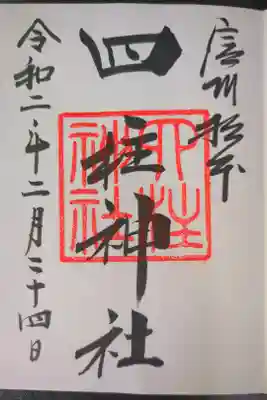 信州松本
四柱神社
四柱神社
令和二年二月二十四日